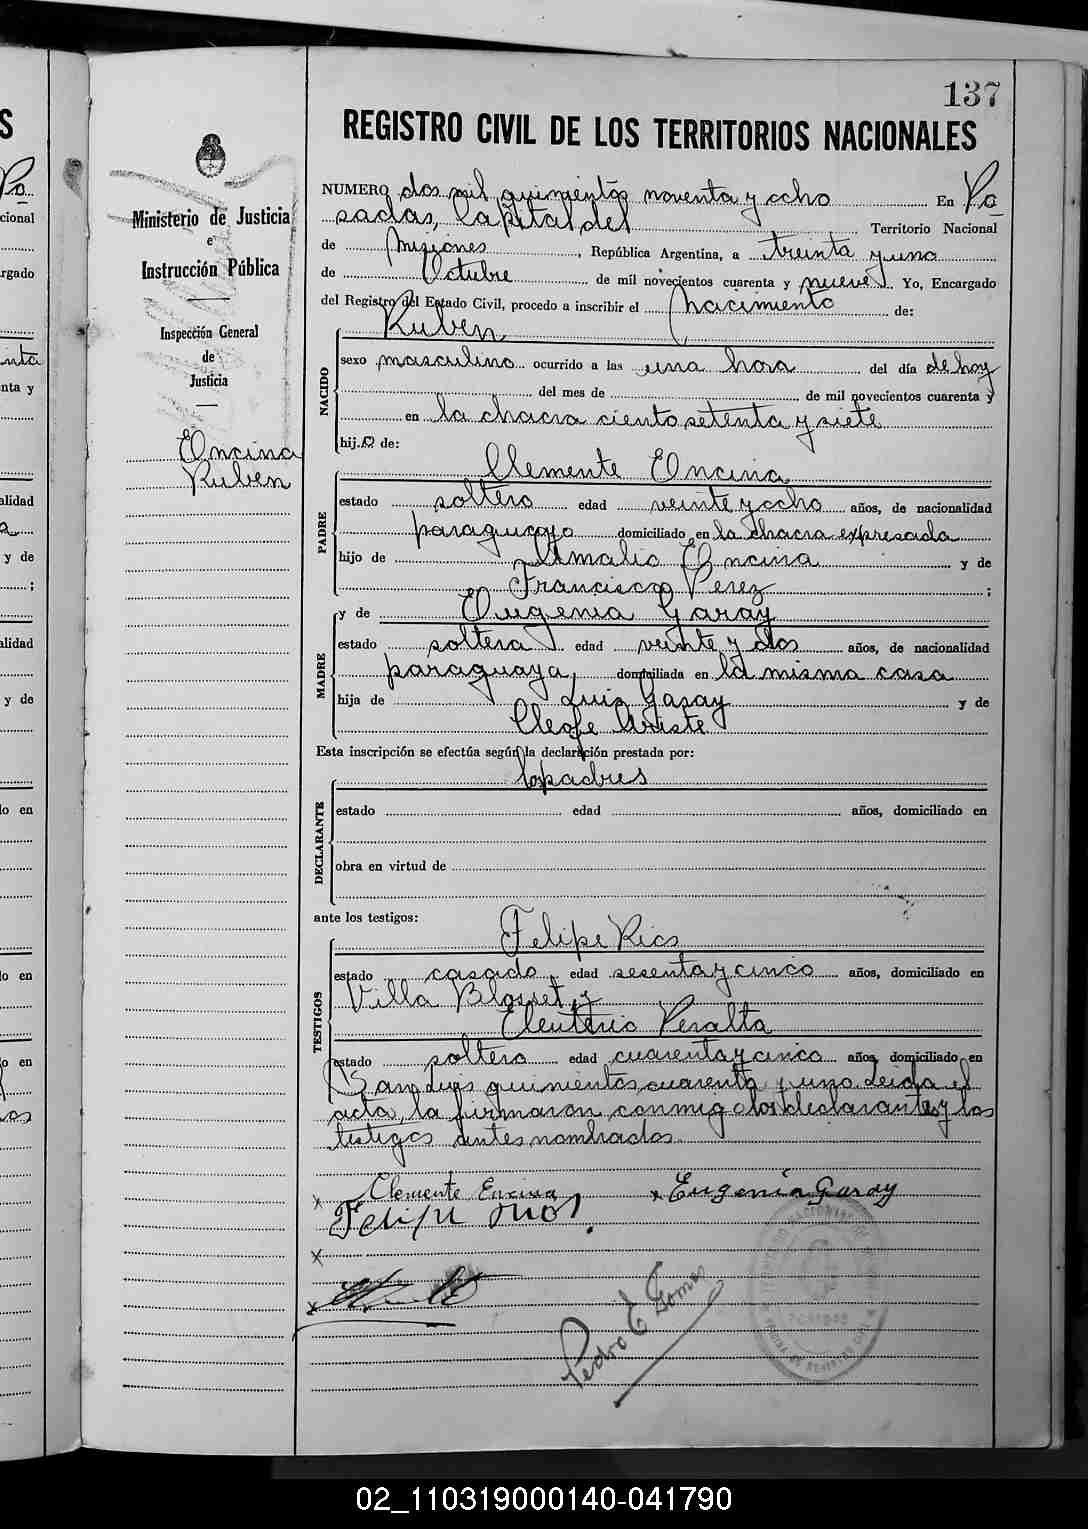 137
REGISTRO CIVIL DE LOS TERRITORIOS NACIONALES
Ministerio de Justicia
e
Instrucción Pública
Inspección General
de
Justicia
Encina
Ruben
NUMERO dos mil quinientos noventa y ocho En Po
sadas, Capital del Territorio Nacional
de Misiones, República Argentina, a treinta y uno
de Octubre de mil novecientos cuarenta y nueve Yo, Encargado
del Registro del Estado Civil, procedo a inscribir el nacimiento de:
Ruben
NACIDO
sexo masculino ocurrido a las una hora del día de hoy
del mes de de mil novecientos cuarenta y
en la chacra ciento setenta y siete
hijo de:
Clemente Encina
PADRE
estado soltero edad veinte y ocho años, de nacionalidad
paraguayo domiciliado en la chacra expresada
hijo de Amalio Encina y de
Francisca Perez ;
y de Eugenia Garay
MADRE
estado soltera edad veinte y dos años, de nacionalidad
paraguaya, domiciliada en la misma casa
hija de Luis Garay y de
Cleofe
Esta inscripción se efectúa según la declaración prestada por:
los padres
DECLARANTE
estado edad años, domiciliado en
obra en virtud de
ante los testigos:
Felipe Rios
TESTIGOS
estado casado edad sesenta y cinco años, domiciliado en
Villa Blosset y
Eleuterio Peralta
estado soltero edad cuarenta y cinco años, domiciliado en
San Luis quinientos cuarenta y uno. Leida el
acta, la firmaron conmigo los declarantes y los
testigos antes nombrados.
x Clemente Encina x Eugenia Garay
Felipe Rios
x
x
Pedro E Gomez
02_110319000140-041790